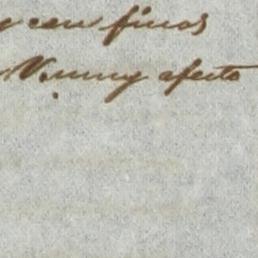 y con finos
V. muy afecto